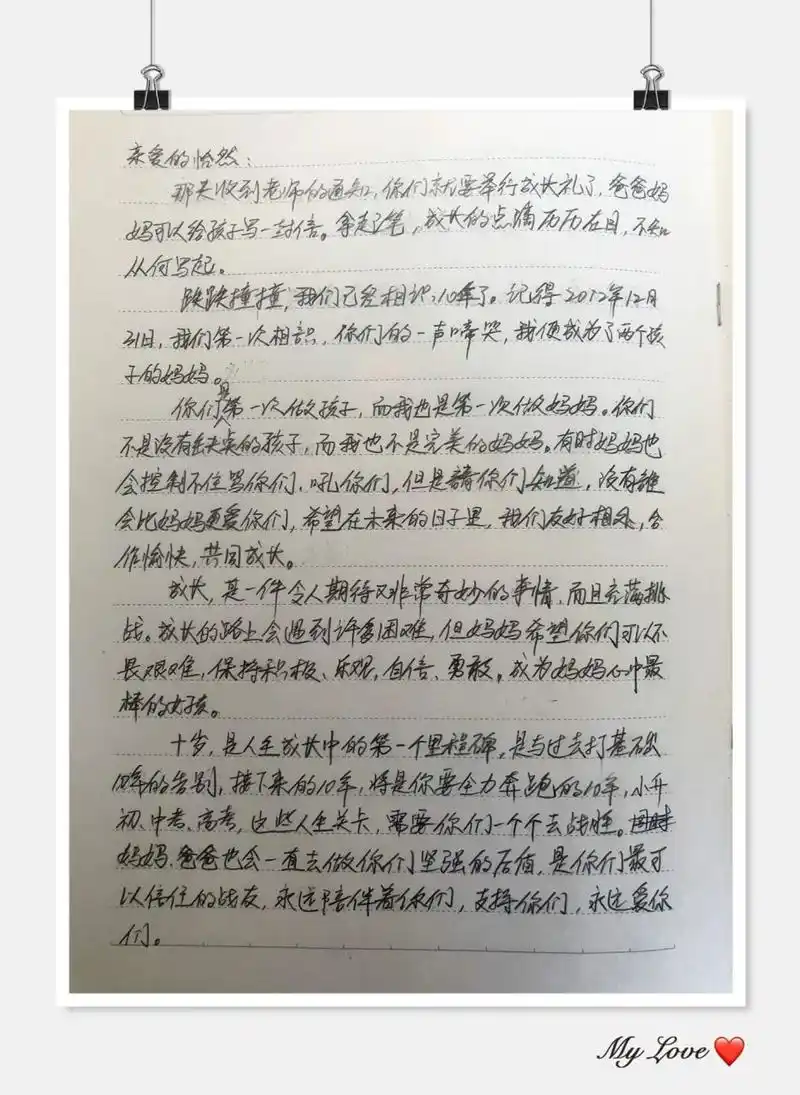 亲爱的怡然:
那天收到老师的通知,你们就要举行成长礼了,爸爸妈
妈可以给孩子写一封信。拿起笔,成长的点滴历历在目,不知
从何写起。
跌跌撞撞,我们已经相识10年了。记得2012年12月
31日,我们第一次相识,你们的一声啼哭,我便成为了两个孩
子的妈妈。
你们是第一次做孩子,而我也是第一次做妈妈。你们
不是没有缺点的孩子,而我也不是完美的妈妈。有时妈妈也
会控制不住骂你们、吼你们,但是請你们知道,没有誰
会比妈妈更爱你们,希望在未来的日子里,我们友好相处,合
作愉快,共同成长。
成长,是一件令人期待又非常奇妙的事情,而且充满挑
战。成长的路上会遇到许多困难,但妈妈希望你们可以不
畏艰难,保持积极、乐观,自信、勇敢。成为妈妈心中最
棒的女孩。
十岁,是人生成长中的第一个里程碑,是与过去打基础
10年的告别,接下来的10年,将是你要全力奔跑的10年,小升
初、中考、高考,这些人生关卡,需要你们一个个去战胜。同时
妈妈、爸爸也会一直去做你们坚强的后盾,是你们最可
以信任的战友,永远陪伴着你们,支持你们,永远爱你
们。
My Love